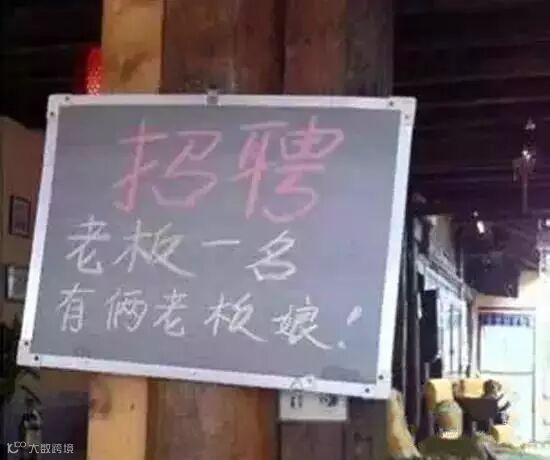 招聘
老板一名
有俩老板娘!
大数跨境